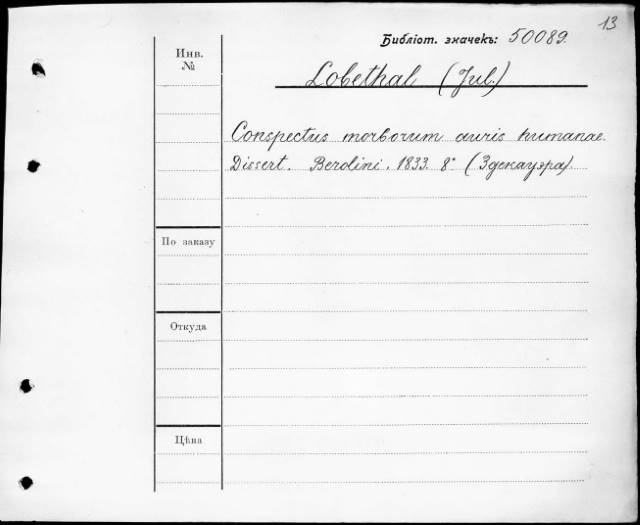 13
Библіот. значекъ: 50089.
Инв.
№
Lobethal (Jul.)
Conspectus morborum auris humanae.
Dissert. Berolini. 1833. 8° (Здекауэра).
По заказу
Откуда
Цѣна